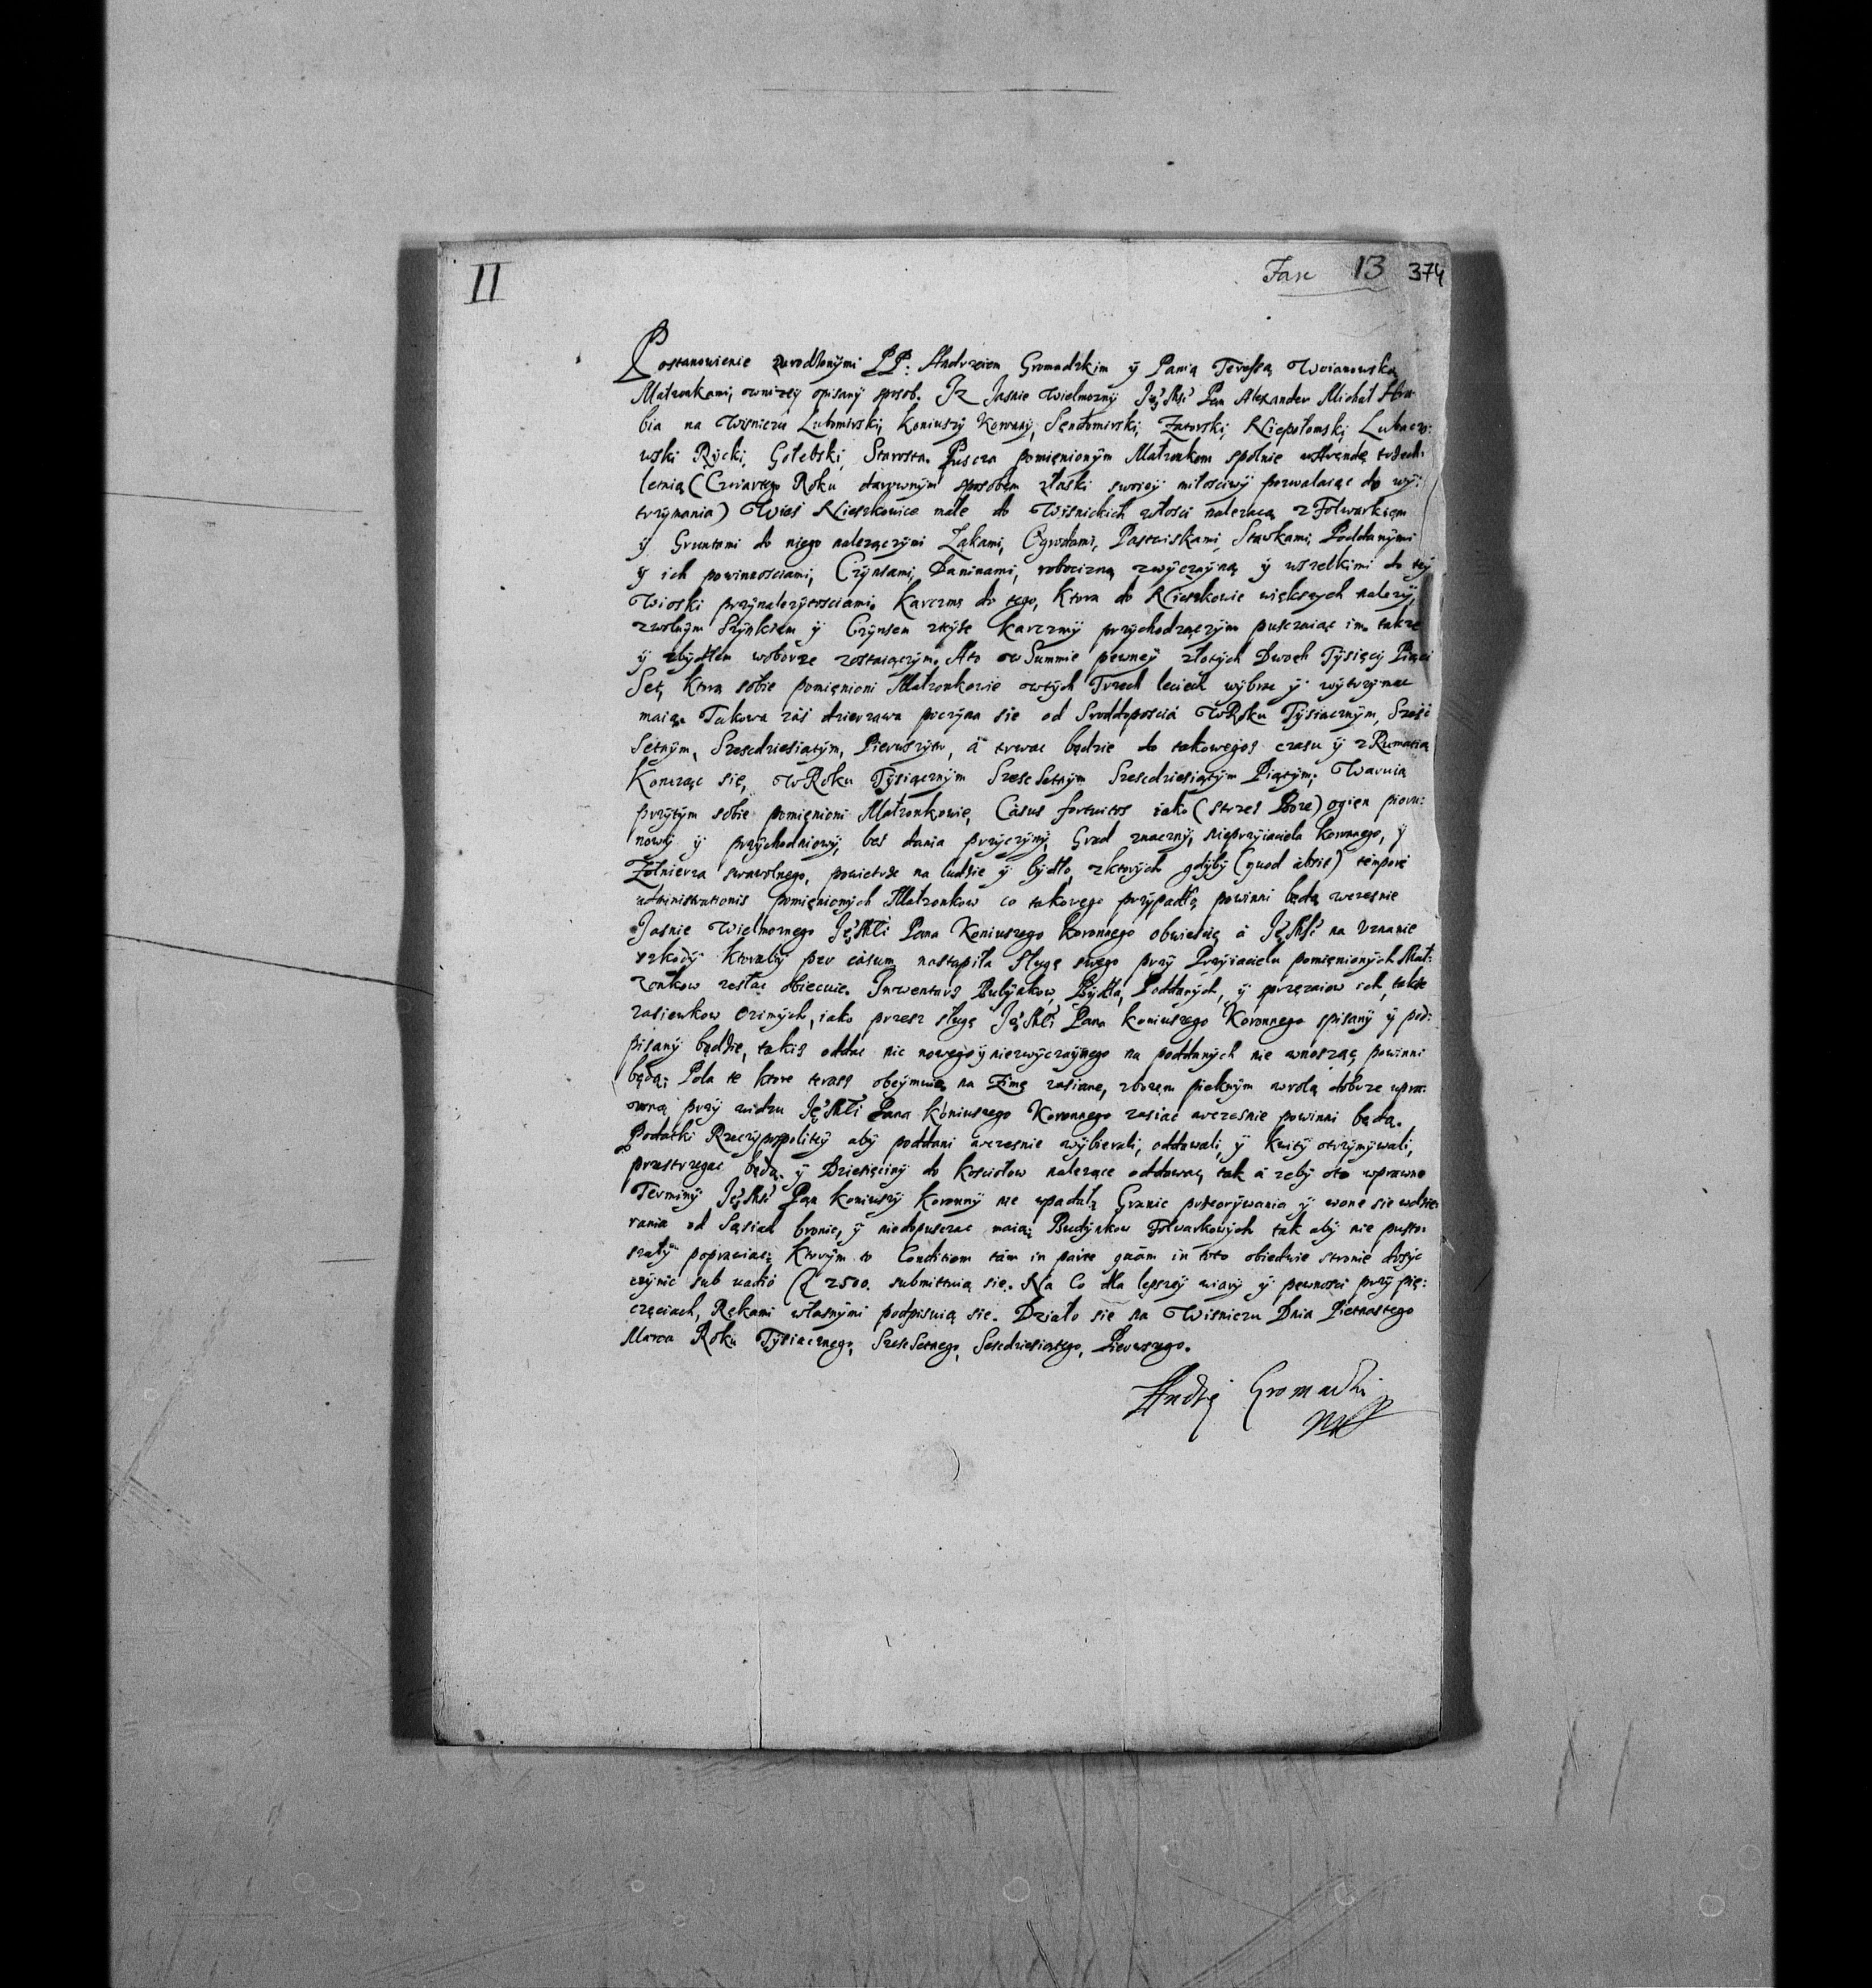 II
Fasc 13 374
Postanowienie zurodzonymi PP: Andrzeiem Gromadzkim ÿ Panią Teressą Woianowską
Małzonkami, wnizey opisany sposob. Iz Jasnie Wielmozny Jeº Mść Pan Alexander Michał Hra-
bia na Wisniczu Lubomirski, Koniuszy Koronny, Sendomirski, Zatorski, Niepołomski, Lubacz:
wski Rycki, Gołebski, Starosta. Puscza pomięnionÿm Małzonkom społnie wArendę trzech
letnią (Czwartego Roku darownÿm sposobem złaski swoiey miłosciwÿ pozwalaiąc do wÿ:
trzÿmania) Wieś Nieszkowice małe do Wisnickich włosci nalezącą z Folwarkiem
ÿ Gruntami do niego nalezącymi Łąkami, Ogrodami, Pastwiskami, Stawkami, Poddanÿmi
ÿ ich powinnosciami, Czÿnsami, Daninami, robocizną zwÿczaÿną ÿ wszelkimi do teÿ
Wioski przÿnalezÿtosciami. Karczmę do tego, Ktora do Nieszkowic większych nalezÿ,
zwolnÿm Szÿnkiem ÿ Czÿnsem zteÿże Karczmÿ przÿchodzączÿm pusczaiąc im. takze
ÿ zbÿdłem woborze zostaiączÿm. Ato wSummie pewneÿ złotÿch Dwoch Tÿsięcÿ Pięci
Set, Ktorą sobie pomięnioni Małzonkowie wtÿch Trzech leciech wÿbrac ÿ wÿtrzÿmac
maią. Takowa zaś dzierzawa poczÿna sie od Sroddoposcia WRoku Tÿsiącznÿm, Sześć
Setnÿm, Szescdziesiątÿm, Pierwszÿm, á trwac będzie do takowegoż czasu ÿ zRumacią
Koncząc się, WRoku Tÿsiącznÿm SzescSetnÿm Szescdziesiątÿm Piątÿm. Waruią
przÿtÿm sobie pomięnioni Małzonkowie, Casus fortuitos iako (strzeż Boze) ogien pioru:
nowÿ ÿ przÿchodniowÿ, bes dania przÿczÿnÿ, Grad znacznÿ, nieprzÿiaciela Koronnego, ÿ
Zołnierza swawolnego, powietrze na ludzie ÿ bÿdło, zktorÿch gdÿbÿ (quod absit) tempore
administrationis pomięnionÿch Małzonkow co takowego przÿpadło, powinni będą wczesnie
Jasnie Wielmoznego Jeº Mści Pana Koniuszego Koronnego obwiescić á Jeº Mść na Vznanie
szkodÿ Ktorabÿ per casum nastąpiła sługę swego przÿ Przÿiacielu pomięnionÿch Mał:
zonkow zesłac obiecuie. Inwentarz Budÿnkow, Bÿdła, Poddanÿch, ÿ sprzęzaiow ich, także
zasiewkow Ozimÿch, iako przesz sługę Jeº Mści Pana Koniuszego Koronnego spisanÿ ÿ pod:
pisanÿ będzie, takiż oddac nic nowego ÿ niezwÿczaÿnego na poddanÿch nie wnosząc, powinni
będą; Pola te ktore terasz obeÿmuią na Zimę zasiane, zbozem pieknÿm wrolą dobrze upra:
wną przÿ widzu Jeº Mści Pana Koniuszego Koronnego zasiac wczesnie powinni będą.
Podatki Rzeczÿpospoliteÿ abÿ poddani wczesnie wÿbierali, oddawali, ÿ kwitÿ otrzÿmÿwali,
przestrzegac będą, ÿ Dziesięcinÿ do kosciołow nalezące oddawac, tak á zebÿ oto wprawne
Terminÿ Jeº Mść Pan Koniuszÿ Koronnÿ nie wpadał, Granic przeorÿwania ÿ wone sie wdzie:
rania od Sąsiad bronic, ÿ niedopusczac maią; Budÿnkow Folwarkowÿch tak abÿ nie pusto:
szałÿ poprawiac. Ktorÿm to Conditiom tám in parte quám in toto obiedwie stronie dosÿc
czÿnic sub vadio 2500. submittuią się. Na Co dla lepszeÿ wiarÿ ÿ pewnosci przÿ pię:
częciach, Rękami własnÿmi podpisuią sie. Działo sie na Wisniczu Dnia Pietnastego
Marca Roku Tÿsiącznego, SzescSetnego, Sescdziesiątego, Pierwszego.
Andrzei Gromadzki
mp